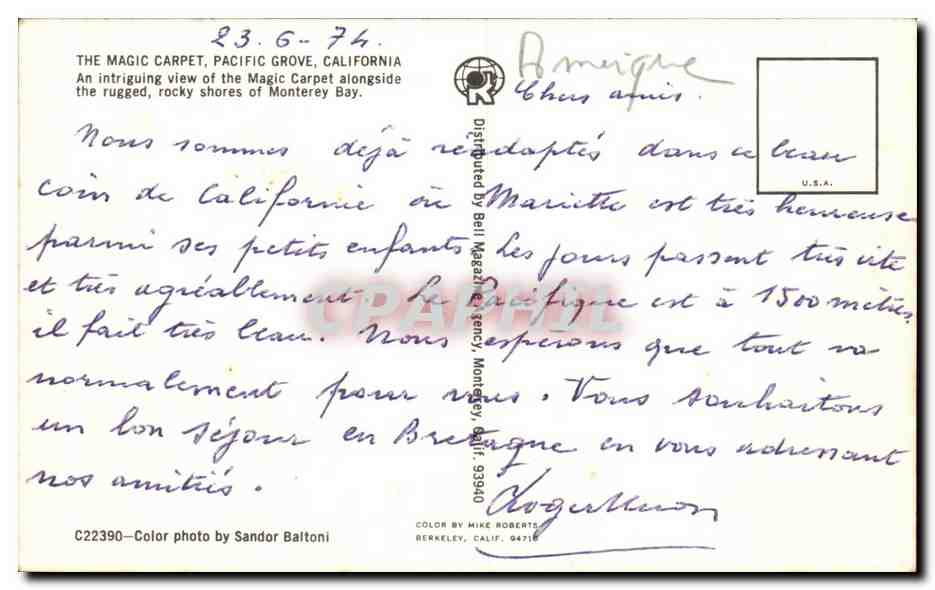 23.6-74.
THE MAGIC CARPET, PACIFIC GROVE, CALIFORNIA
An intriguing view of the Magic Carpet alongside
the rugged, rocky shores of Monterey Bay.
Amérique
Chers amis.
U.S.A.
Nous sommes déjà réadaptés dans ce beau
coin de Californie où Mariette est très heureuse
parmi ses petits enfants. Les jours passent très vite
et très agréablement. Le Pacifique est à 1500 mètres.
il fait très beau. Nous espérons que tout va
normalement pour vous. Vous souhaitons
un bon séjour en Bretagne en vous adressant
nos amitiés.
Roger
Distributed by Bell Magazine Agency, Monterey, Calif. 93940
C22390—Color photo by Sandor Baltoni
COLOR BY MIKE ROBERTS
BERKELEY, CALIF. 94710
CPAPHIL